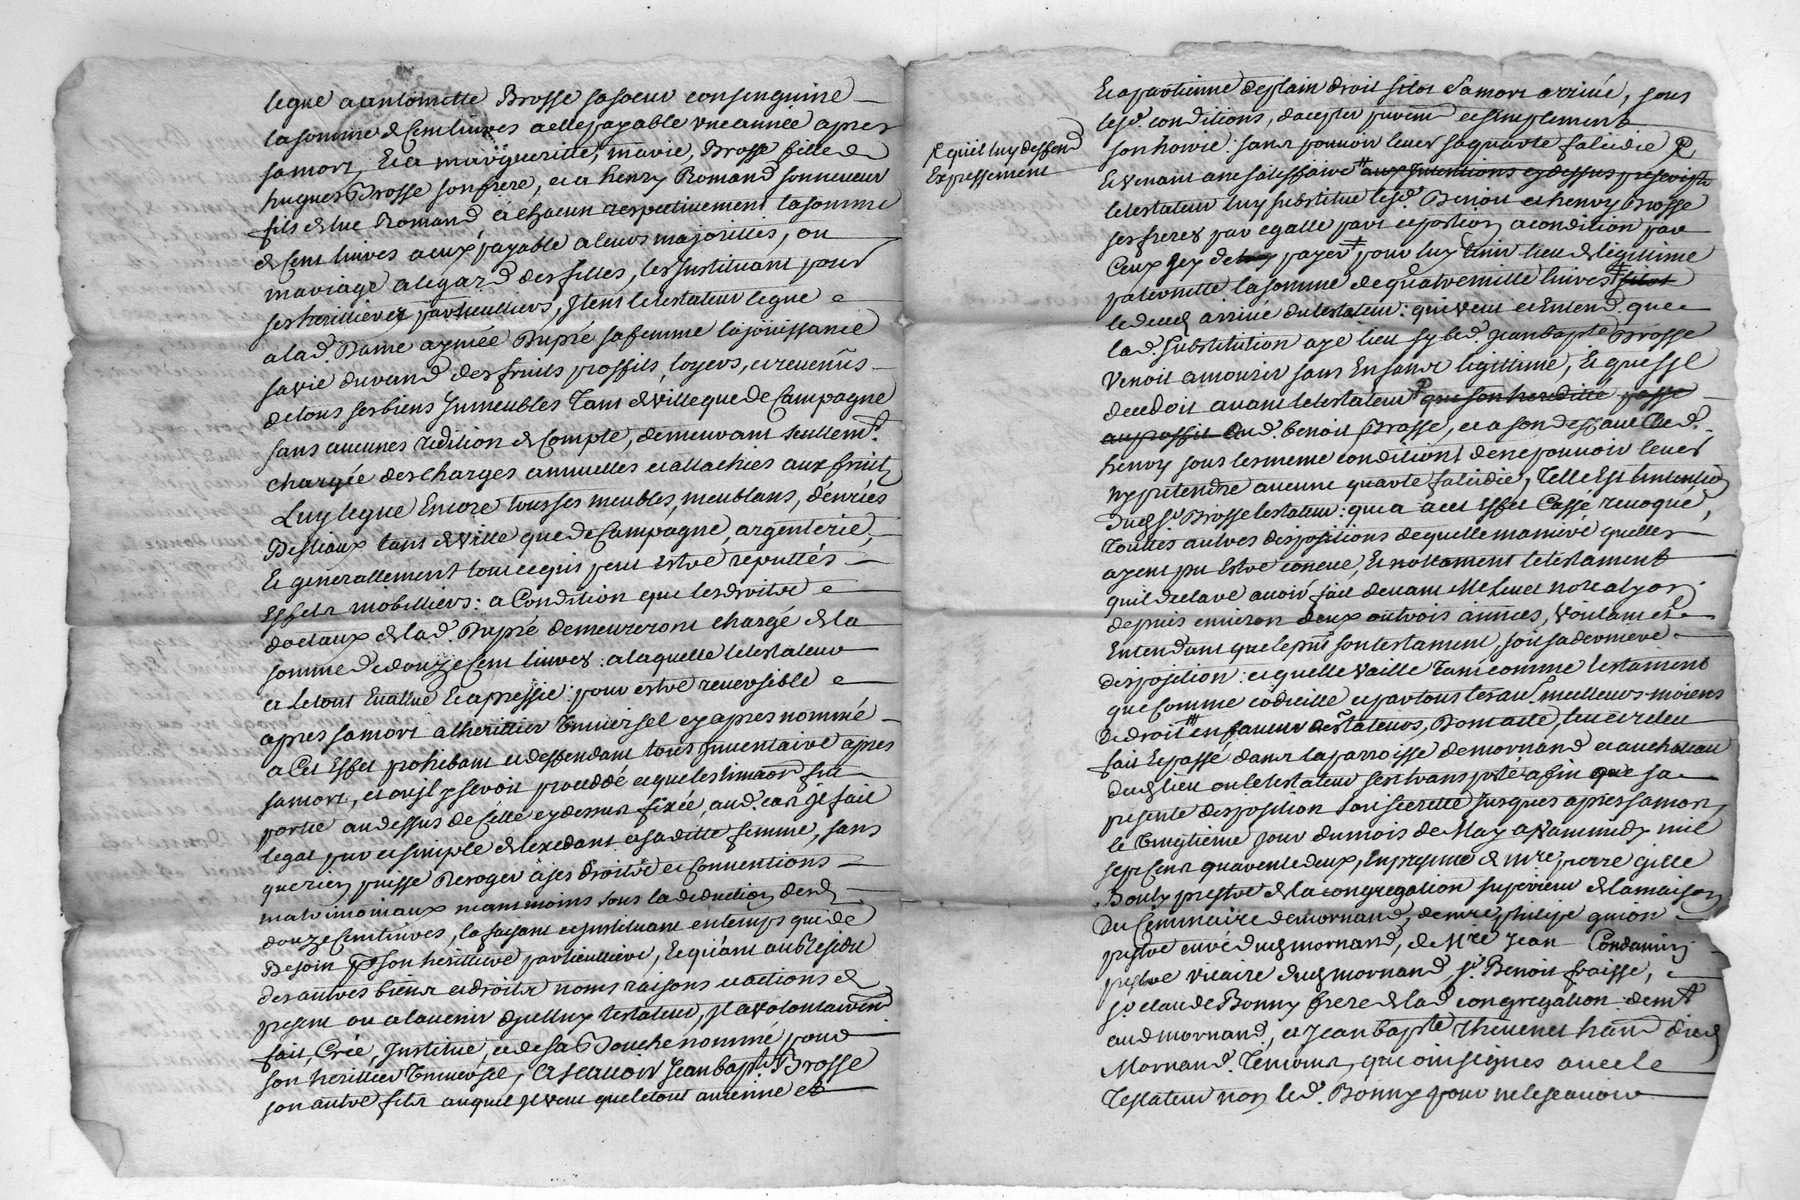 legue a antoinette Brosse sa soeur consenguine
la somme de Cent livres a elle payable une année apres
sa mort, Et a margueritte, marie, Brosse fille de
hugues Brosse son frere, et a henry Romand son neveu
fils de luc Romand et chacun respectivement la somme
de Cent livres a eux payable a leurs majorittés, ou
mariage a legard des filles, les Jnstituant pour
ses herittieres particulliers, Jtem le testateur legue
a lad. Dame aymée Dupré sa femme la joüissance
sa vie durand des fruits proffits, loyers, et revenus
de tous ses biens Jmmeubles Tant de ville que de Campagne
sans aucunes redition de Compte, demeurant seullemt.
chargée des Charges annuelles et attachées aux fruits
Luy legue Encore tous ses meubles, meublans, denrées
Bestiaux tant de ville que de Campagne, argenterie,
Et generallement tout ce qui peut Estre reputtés
Effets mobilliers: a Condition que les droits
dotaux de lad. Dupré demeureront chargé de la
somme de douze Cent livres a laquelle le testateur
a le tout Evallue Et apressie: pour estre reversible
apres sa mort a lherittier Universel cy apres nommé
a Cet Effet prohibant et deffendant tous Jnventaire apres
sa mort, et ou jl y seroit proceddé et que lestimaon fut
portée au dessus de Celle cy dessus fixée, aud. cas jl fait
legat pur et simple de lexedant a sa ditte femme, sans
que rien puisse Deroger a ses droits et Conventions
matrimoniaux neammoins sous la deduction desd.
douze Cent livres, la faisant et instituant en temps que de
Besoin son heritiere particulliere, Et quant au Residu
des autres biens et droits noms raisons et actions
present ou a lavenir dicelluy testateur, jl a volontairemt
fait, Crée, Jnstitué, et de sa Bouche nommé pour
son herittier Universel, a scavoir Jean bapt. Brosse
son autre fils auquel jl veut que le tout avienne et
Et apartienne de plain droit sitot sa mort arrivé, sous
lesd. conditions, daccepter purement et simplement
son hoirie: sans pouvoir lever sa quarte falcidie
& quil luy deffend
Expressement
Et venant a ne satisfaire aux Jntentions cy dessus prescrip
le testateur luy substitue lesd. Benoit et henry Brosse
ses freres par egalle part et portion a condition par
Ceux Icy de payer pour luy tenir lieu de legitime
paternelle la somme de quatre mille livres sitot
le deces arrivé du testateur: qui veut et entend que
lad. substitution aye lieu sy led. Jean bapte Brosse
Venoit a mourir sans Enfans legitime, Et quessil
decedoit avant le testateur que son heredité passe
au proffit dud. benoit Brosse, et a son deffaut aud.
henry sous les meme conditions de ne pouvoir lever
ny pretendre aucune quarte falcidie, Telle Est lintention
dud. Sr Brosse testateur: qui a a cet effet Cassé revoqué,
touttes autres dispositions de quelle maniere quelles
ayent pu Estre conçue, Et nottament le testament
quil declare avoir fait devant Me notre a lyon
depuis environ deux ou trois années, voulant et
Entendant que le pnt son testament, soit sa derniere
disposition: et quelle vaille Tant comme testament
que comme codicille et par tous les aues meilleurs moiens
de droit en faveur Dont acte, leu et releu
fait Et passé dans la parroisse de mornand et au chateau
dud. lieu ou le testateur sest transporté afin que sa
presente disposition soit secrette jusques apres sa mort,
le Vingtieme jour du mois de May apres midy mil
sept Cent quarente deux, En presence de mre pierre gille
Bouly prestre de la congregation superieur de la maison
du Seminaire de mornand, de mre philipe guion
prestre curé dud. mornand, de Mre Jean Condamin
prestre vicaire dud. mornand, Sr Benoit fraisse,
Sr claude Bonny frere de lad. congregation demt
aud. mornand, et Jean bapte Thevenet hant dud.
Mornand. Temoins, qui ont signés avec le
Testateur non led. Bonny pour ne le scavoir